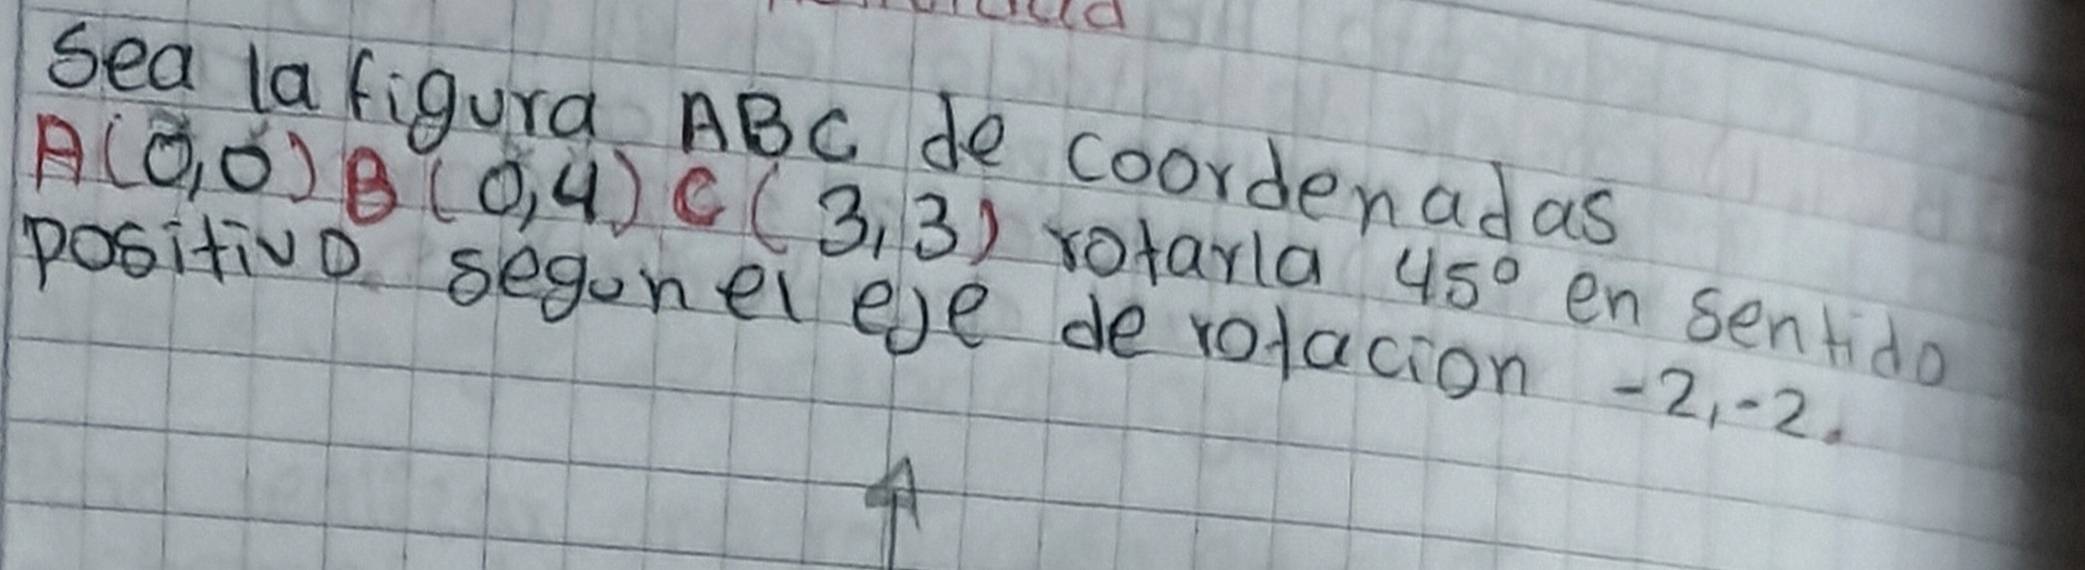 Sea la figura ABC de coordenadas
A(0,0) B(0,4) C(3,3) rotarla 45° en sentido
positivo segun el eje de rotacion -2,-2.